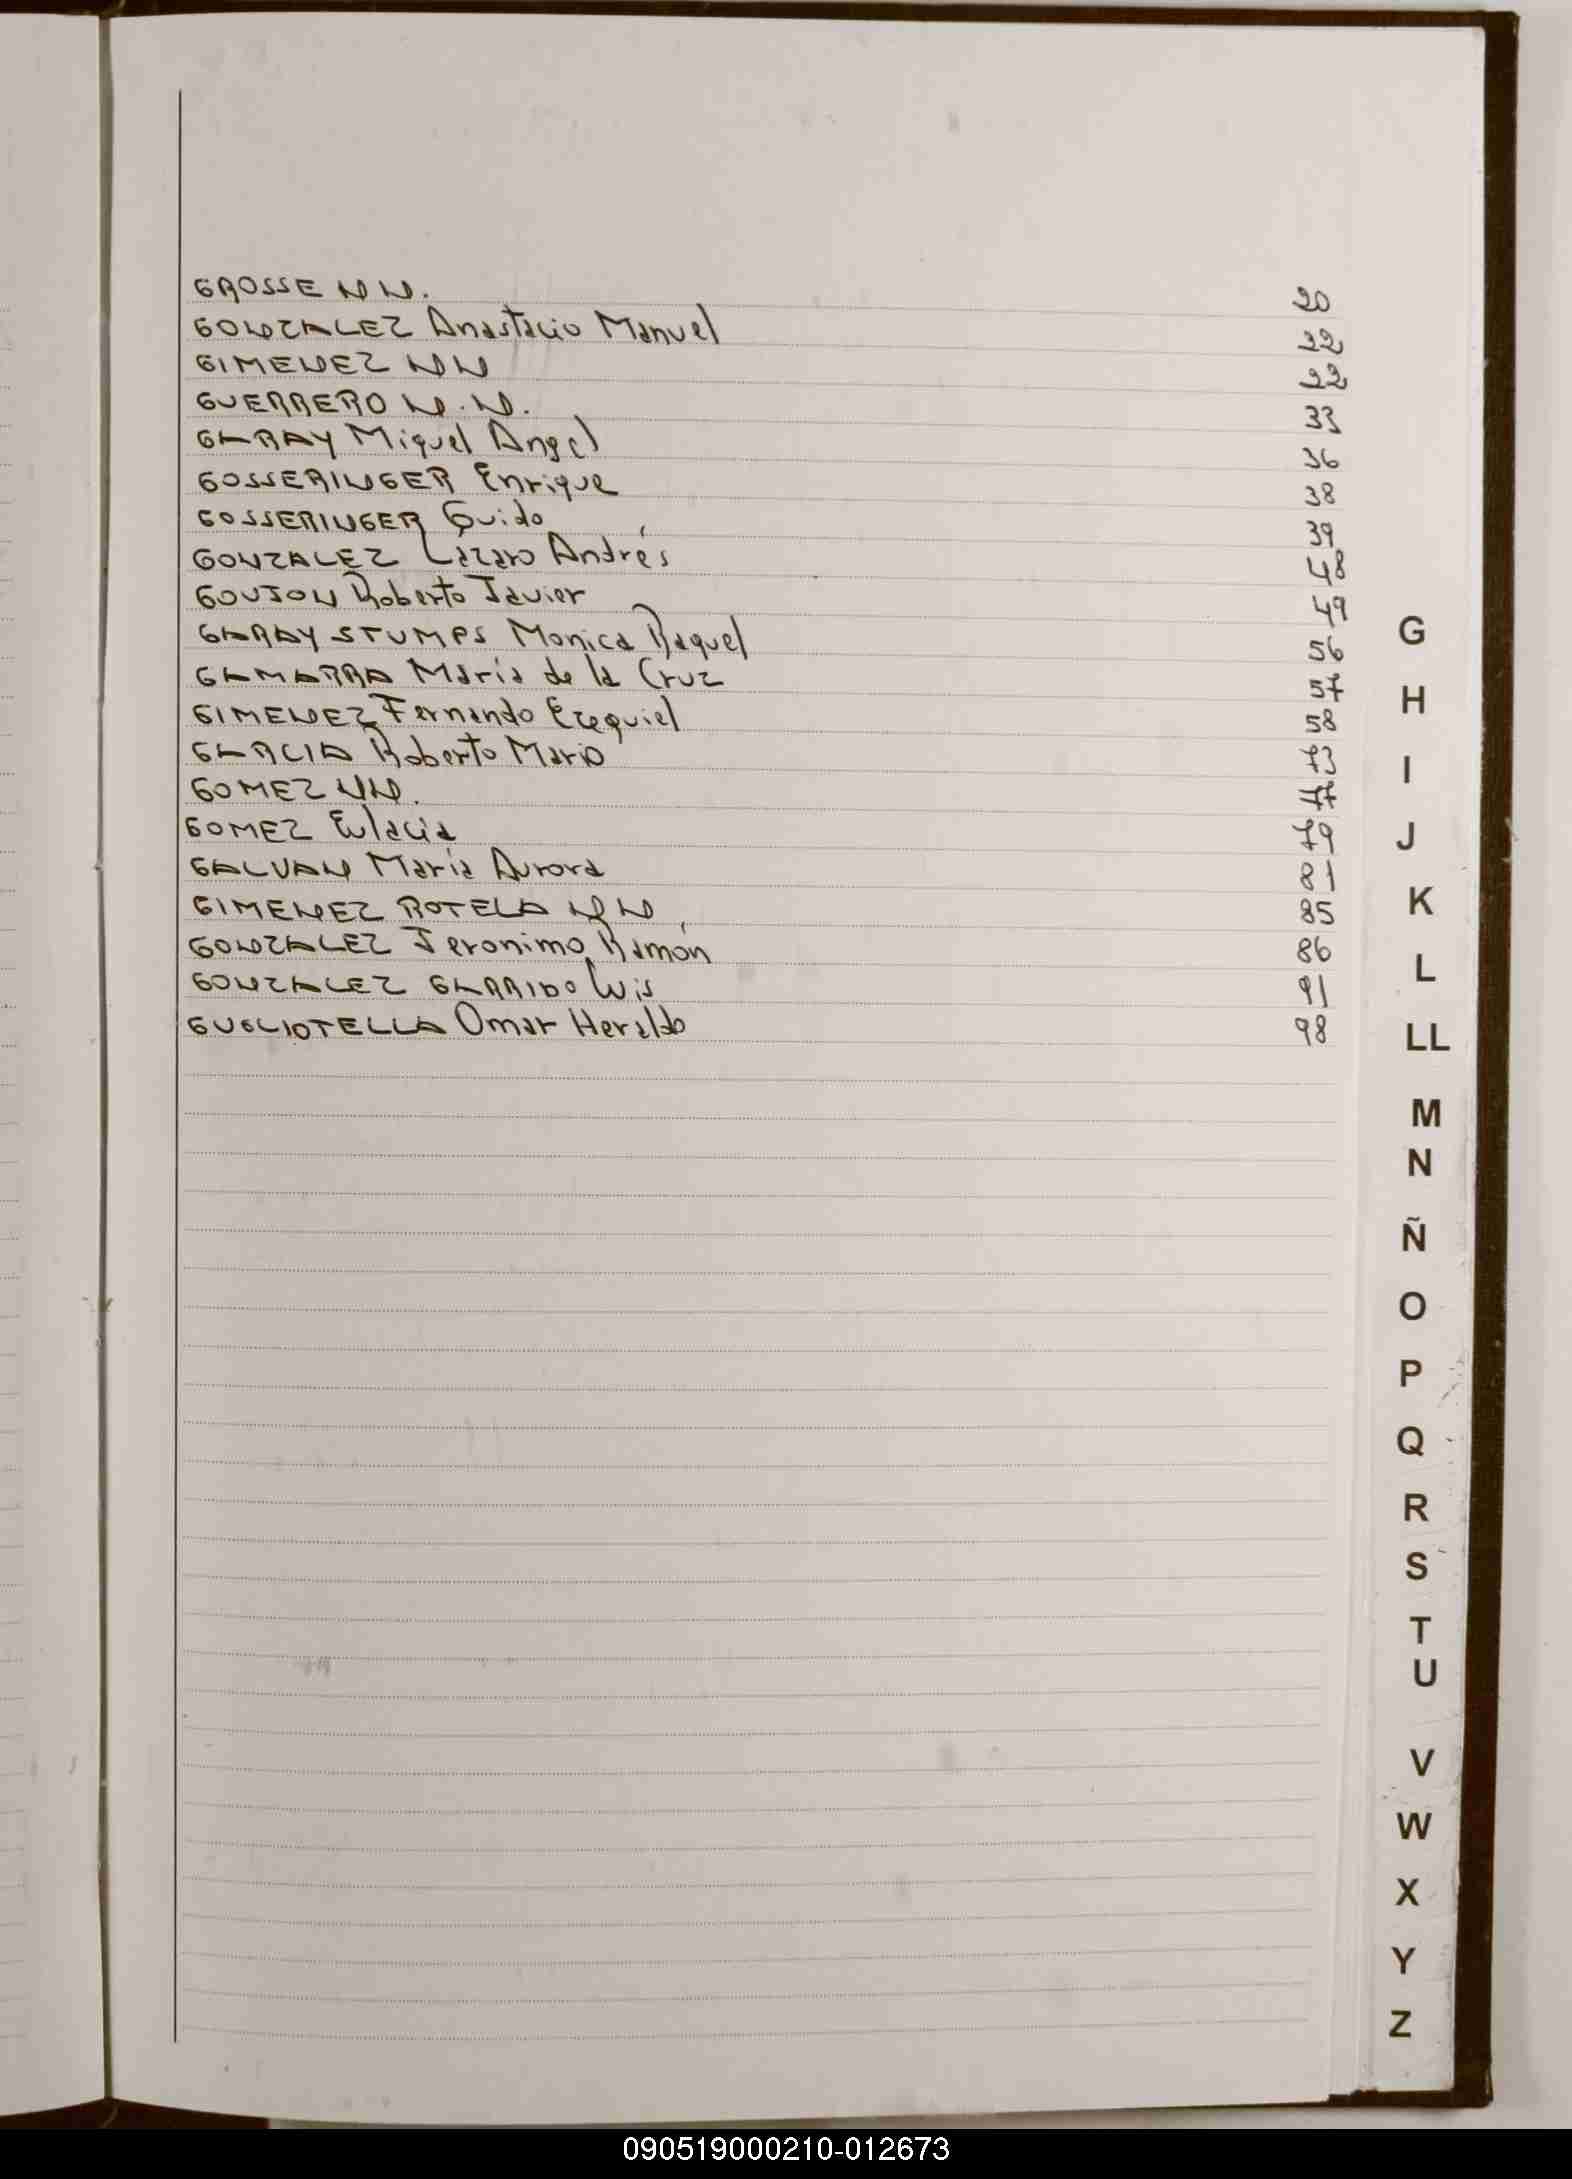 GROSSE NN. 20
GONZALEZ Anastacio Manuel 22
GIMENEZ NN 22
GUERRERO N.N. 33
GARAY Miguel Angel 36
GOSSERINGER Enrique 38
GOSSERINGER Guido 39
GONZALEZ Lázaro Andrés 48
GOUJON Roberto Javier 49
GARAY STUMPS Monica Raquel 56
GAMARRA María de la Cruz 57
GIMENEZ Fernando Ezequiel 58
GARCIA Roberto Mario 73
GOMEZ NN. 77
GOMEZ Eulacia 79
GALVAN María Aurora 81
GIMENEZ ROTELA NN 85
GONZALEZ Jeronimo Ramón 86
GONZALEZ GARRIDO Luis 91
GUGLIOTELLA Omar Heraldo 98
G
H
I
J
K
L
LL
M
N
Ñ
O
P
Q
R
S
T
U
V
W
X
Y
Z
090519000210-012673